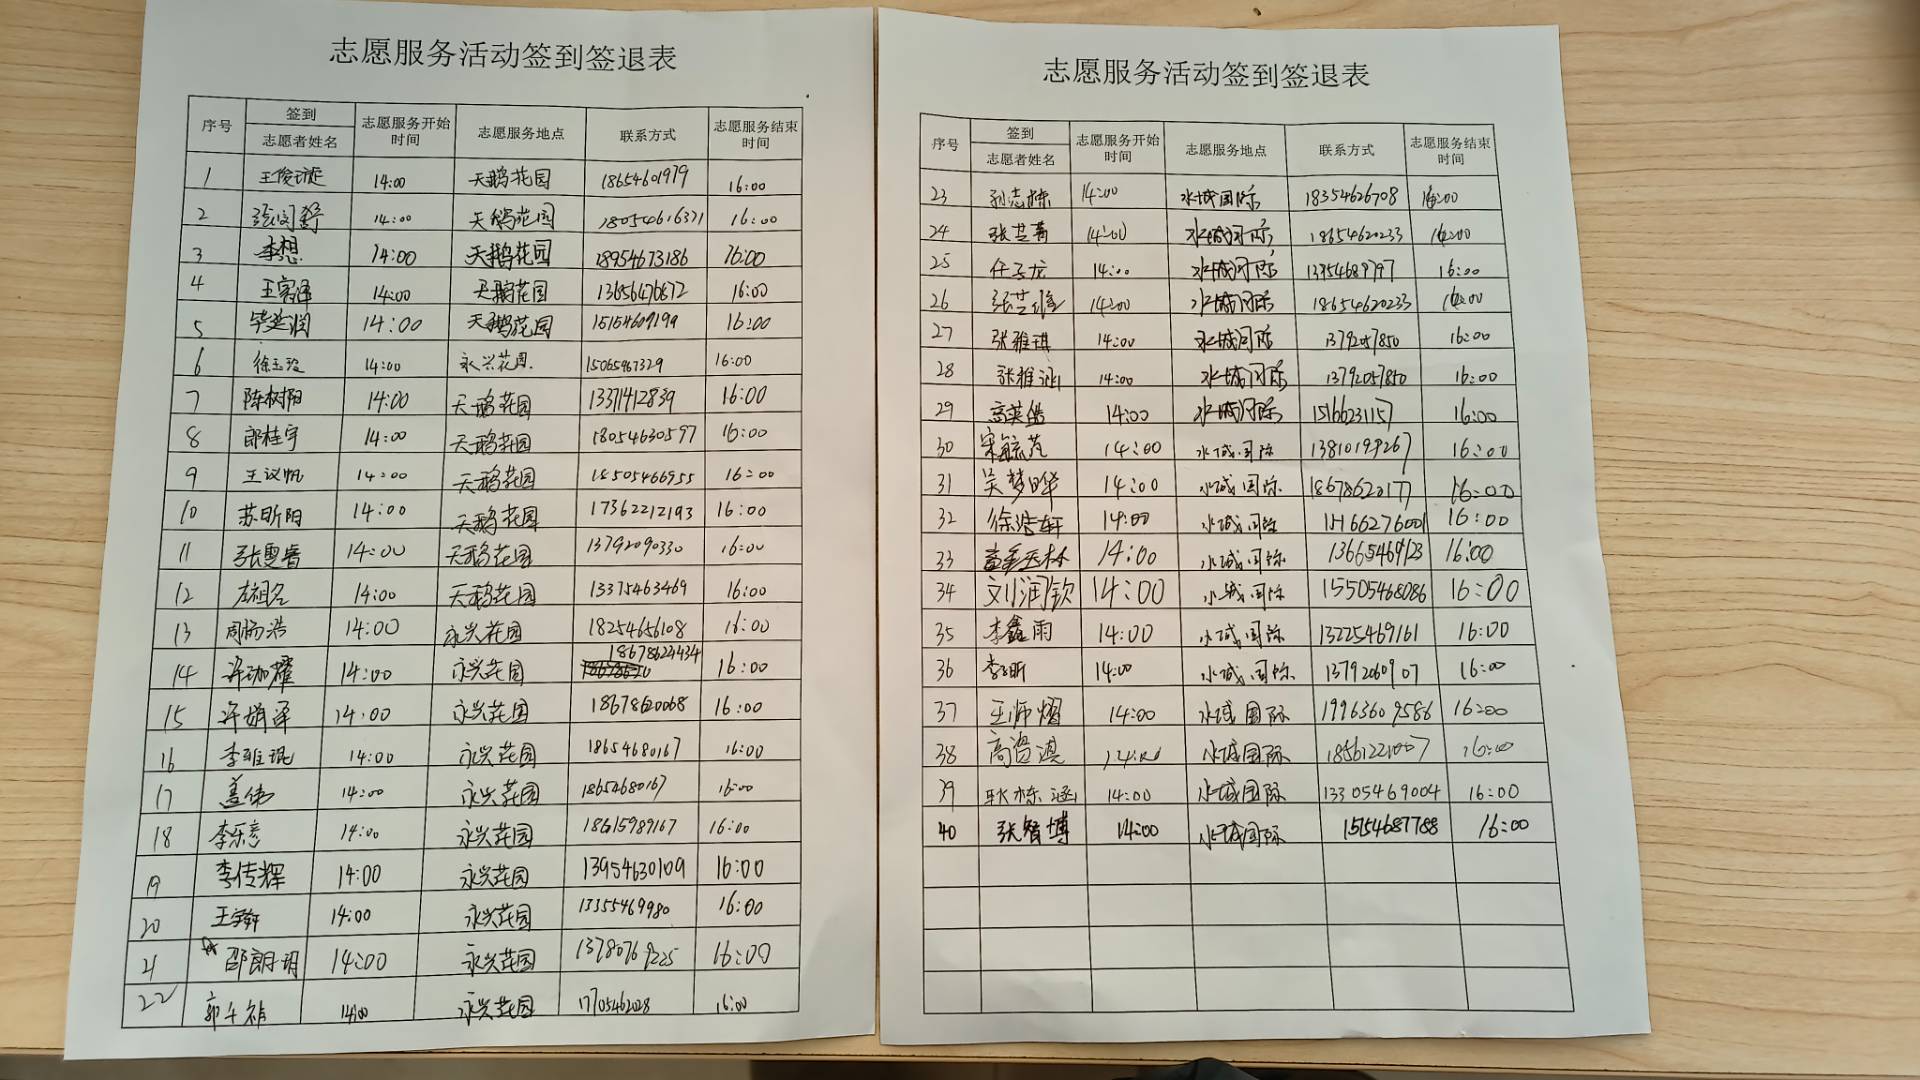 志愿服务活动签到签退表
序号 签到 志愿者姓名 志愿服务开始时间 志愿服务地点 联系方式 志愿服务结束时间
1 14:00 天鹅花园 18654601979 16:00
2 14:00 天鹅花园 18054616371 16:00
3 李想 14:00 天鹅花园 18954673186 16:00
4 14:00 天鹅花园 13656476872 16:00
5 14:00 天鹅花园 15154609199 16:00
6 14:00 永兴花园 15065467329 16:00
7 陈树阳 14:00 天鹅花园 13371412839 16:00
8 郎桂宇 14:00 天鹅花园 18054630597 16:00
9 王议帆 14:00 天鹅花园 15505466955 16:00
10 苏昕阳 14:00 天鹅花园 17362212193 16:00
11 14:00 天鹅花园 13792090330 16:00
12 左祖名 14:00 天鹅花园 13375463469 16:00
13 周杨浩 14:00 永兴花园 18254656108 16:00
14 14:00 永兴花园 16:00
15 14:00 永兴花园 18678620068 16:00
16 李维琨 14:00 永兴花园 18654680167 16:00
17 盖伟 14:00 永兴花园 18654680167 16:00
18 李乐彦 14:00 永兴花园 18615989167 16:00
19 李传辉 14:00 永兴花园 13954630109 16:00
20 14:00 永兴花园 13355469980 16:00
21 邵朗玥 14:00 永兴花园 13780769225 16:00
22 14:00 永兴花园 17705462028 16:00
志愿服务活动签到签退表
序号 签到 志愿者姓名 志愿服务开始时间 志愿服务地点 联系方式 志愿服务结束时间
23 孙志栋 14:00 水城国际 18354626708 16:00
24 张芸菁 14:00 水城国际 18654620233 16:00
25 任子龙 14:00 水城国际 13954689797 16:00
26 14:00 水城国际 18654620233 16:00
27 张雅琪 14:00 水城国际 13792057850 16:00
28 14:00 水城国际 13792057850 16:00
29 高英皓 14:00 水城国际 15166231157 16:00
30 宋毓范 14:00 水城国际 13810199267 16:00
31 吴梦晔 14:00 水城国际 18678620177 16:00
32 徐浩轩 14:00 水城国际 15166276001 16:00
33 14:00 水城国际 13665469123 16:00
34 刘润钦 14:00 水城国际 15505468086 16:00
35 李鑫雨 14:00 水城国际 13225469161 16:00
36 14:00 水城国际 13792060907 16:00
37 王师熠 14:00 水城国际 19963609586 16:00
38 14:00 水城国际 18561221007 16:00
39 耿栎涵 14:00 水城国际 13305469004 16:00
40 张智博 14:00 水城国际 15154687788 16:00